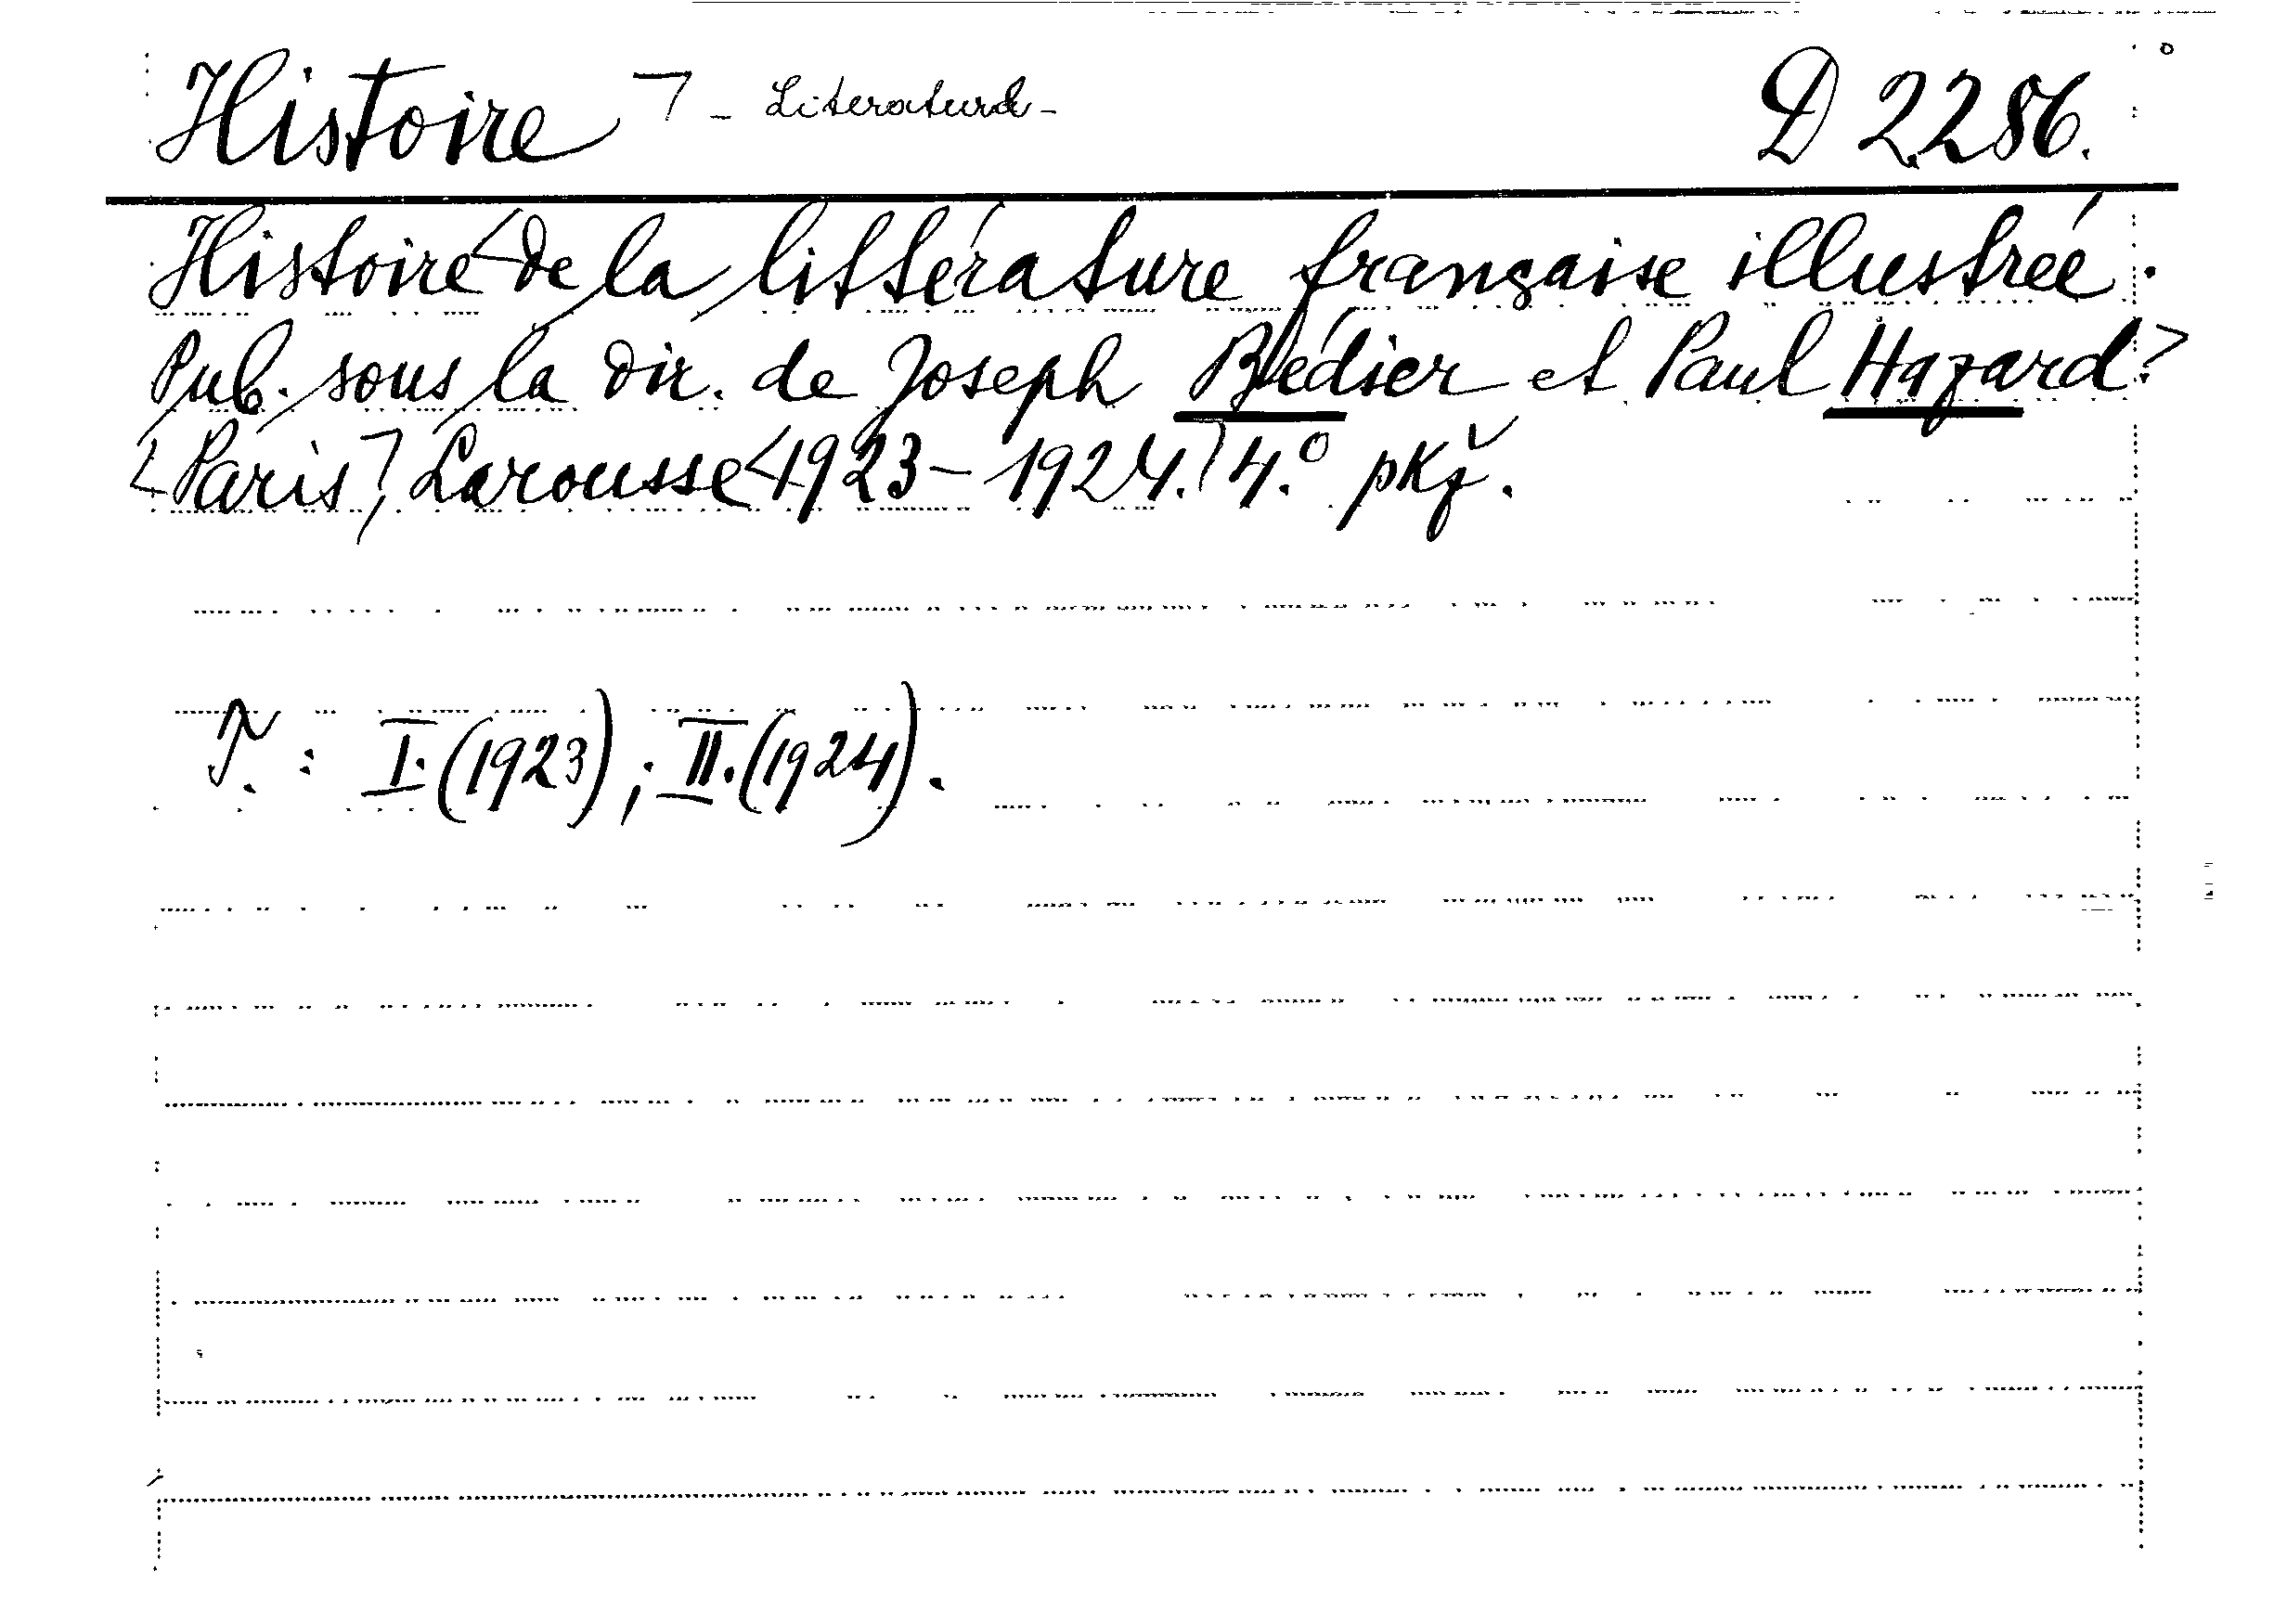 Histoire - Literatura - D 2286.
Histoire de la littérature française illustrée.
Pub. sous la dir. de Joseph Bédier et Paul Hazard.
Paris, Larousse 1923-1924. 4.° pkž.
T. : I. (1923) ; II. (1924).